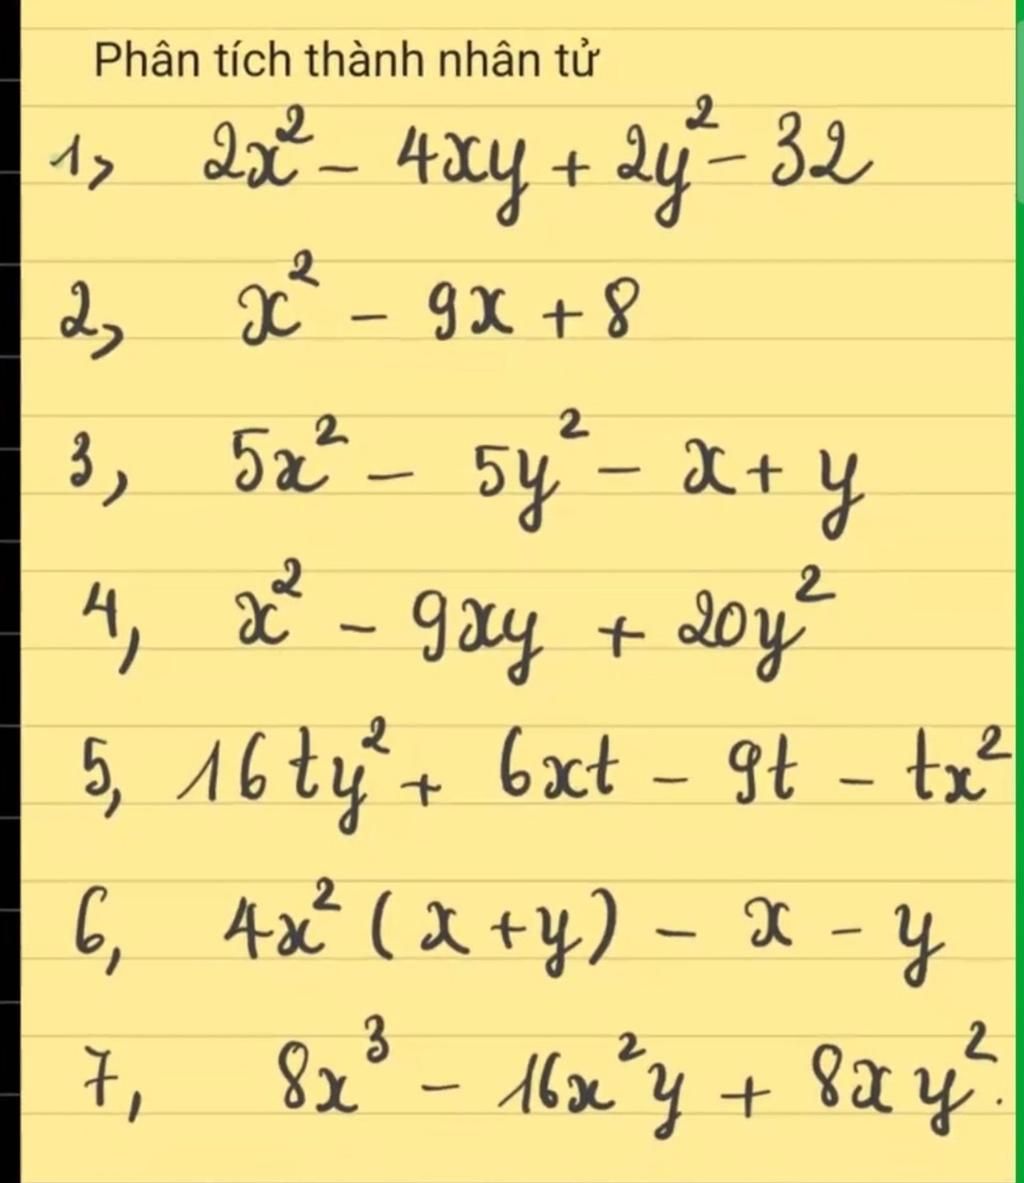 Phân tích thành nhân tử
1, 2x² - 4xy + 2y² - 32
2, x² - 9x + 8
3, 5x² - 5y² - x + y
4, x² - 9xy + 20y²
5, 16ty² + 6xt - 9t - tx²
6, 4x² (x + y) - x - y
7, 8x³ - 16x²y + 8xy².